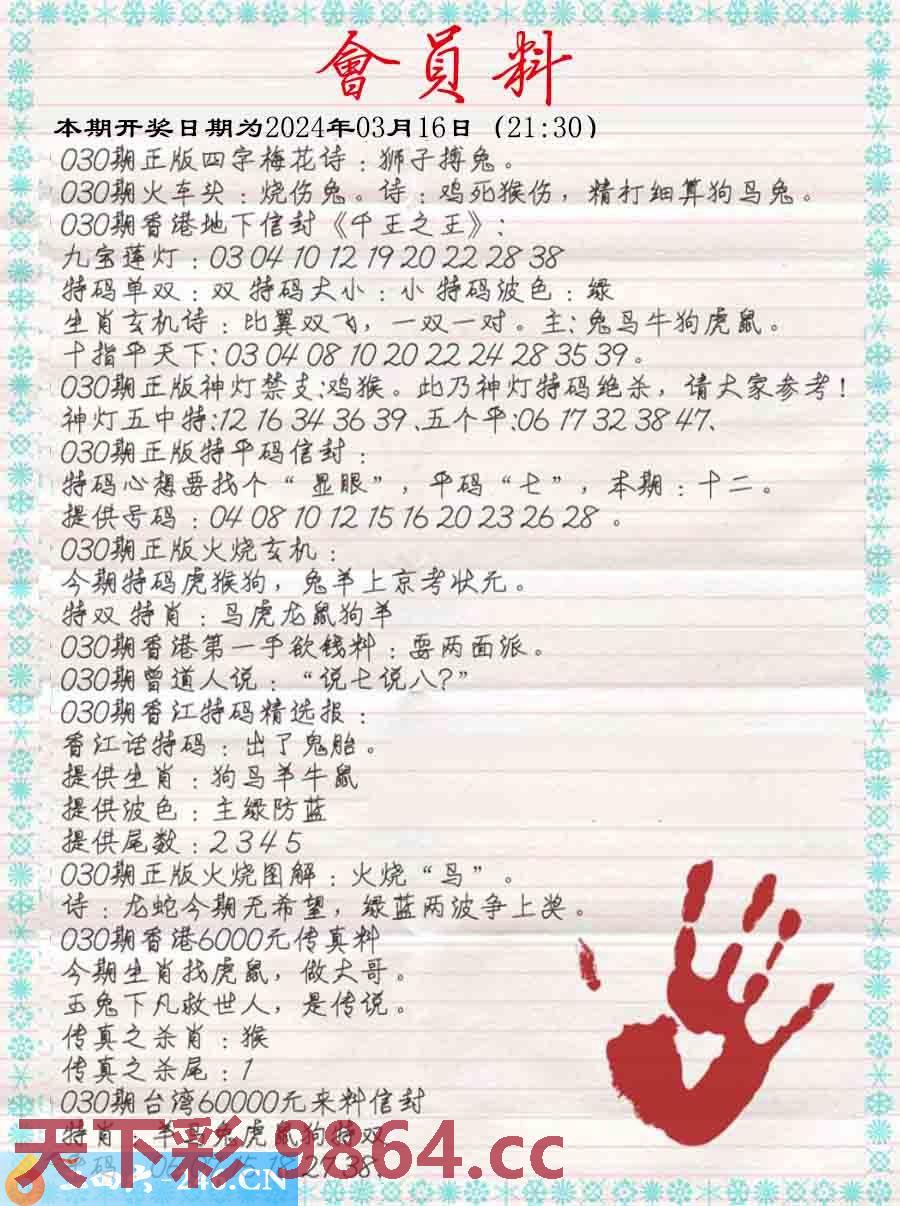 會員料
本期开奖日期为2024年03月16日（21:30）
030期正版四字梅花诗：狮子搏兔。
030期火车头：烧伤兔。诗：鸡死猴伤，精打细算狗马兔。
030期香港地下信封《千王之王》：
九宝莲灯：03 04 10 12 19 20 22 28 38
特码单双：双 特码大小：小 特码波色：绿
生肖玄机诗：比翼双飞，一双一对。主：兔马牛狗虎鼠。
十指平天下：03 04 08 10 20 22 24 28 35 39。
030期正版神灯禁支：鸡猴。此乃神灯特码绝杀，请大家参考！
神灯五中特：12 16 34 36 39、五个平：06 17 32 38 47、
030期正版特平码信封：
特码心想要找个“显眼”，平码“七”，本期：十二。
提供号码：04 08 10 12 15 16 20 23 26 28 。
030期正版火烧玄机：
今期特码虎猴狗，兔羊上京考状元。
特双 特肖：马虎龙鼠狗羊
030期香港第一手欲钱料：耍两面派。
030期曾道人说：“说七说八？”
030期香江特码精选报：
香江话特码：出了鬼胎。
提供生肖：狗马羊牛鼠
提供波色：主绿防蓝
提供尾数：2 3 4 5
030期正版火烧图解：火烧“马”。
诗：龙蛇今期无希望，绿蓝两波争上奖。
030期香港6000元传真料
今期生肖找虎鼠，做大哥。
玉兔下凡救世人，是传说。
传真之杀肖：猴
传真之杀尾：1
030期台湾60000元来料信封
特肖：羊马兔虎鼠狗特双
天下彩 9864.cc
27 38
246.CN